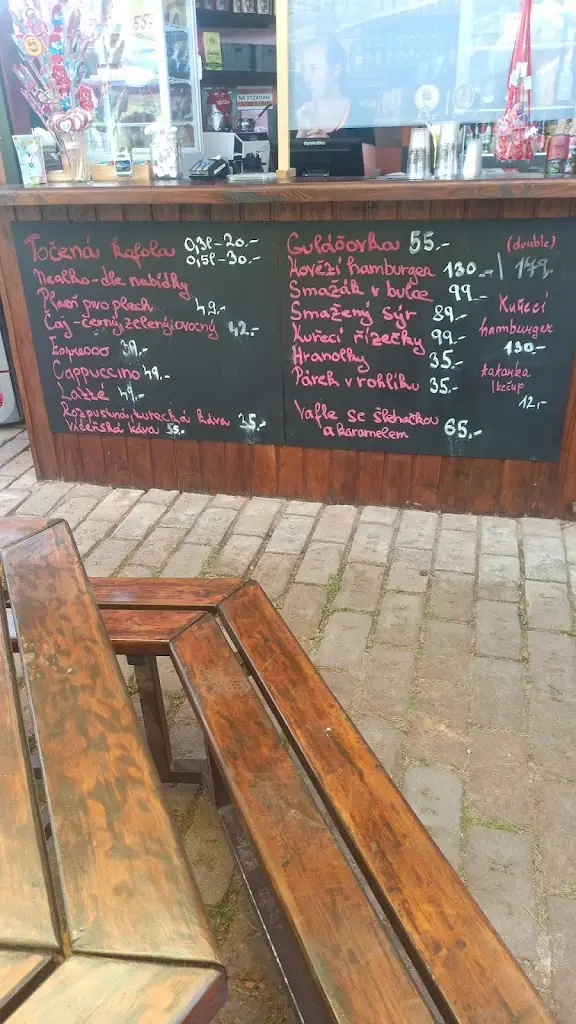 55.-
NA VYŽÁDÁNÍ
dotykačka
Točená kofola 0,3l-20.-
0,5l-30.-
Nealko-dle nabídky
Plzeň pivo plech 49.-
Čaj-černý, zelený, ovocný 42.-
Espresso 39.-
Cappuccino 49.-
Latté 49.-
Rozpustná, turecká káva 35.-
Vídeňská káva 55.-
Gulášovka 55.-
Hovězí hamburger 130.- | 179.-
(double)
Smažák v bulce 99.-
Smažený sýr 89.-
Kuřecí řízečky 99.-
Hranolky 35.-
Párek v rohlíku 35.-
Vafle se šlehačkou
a karamelem 65.-
Kuřecí
hamburger
130.-
tatarka
kečup
12.-